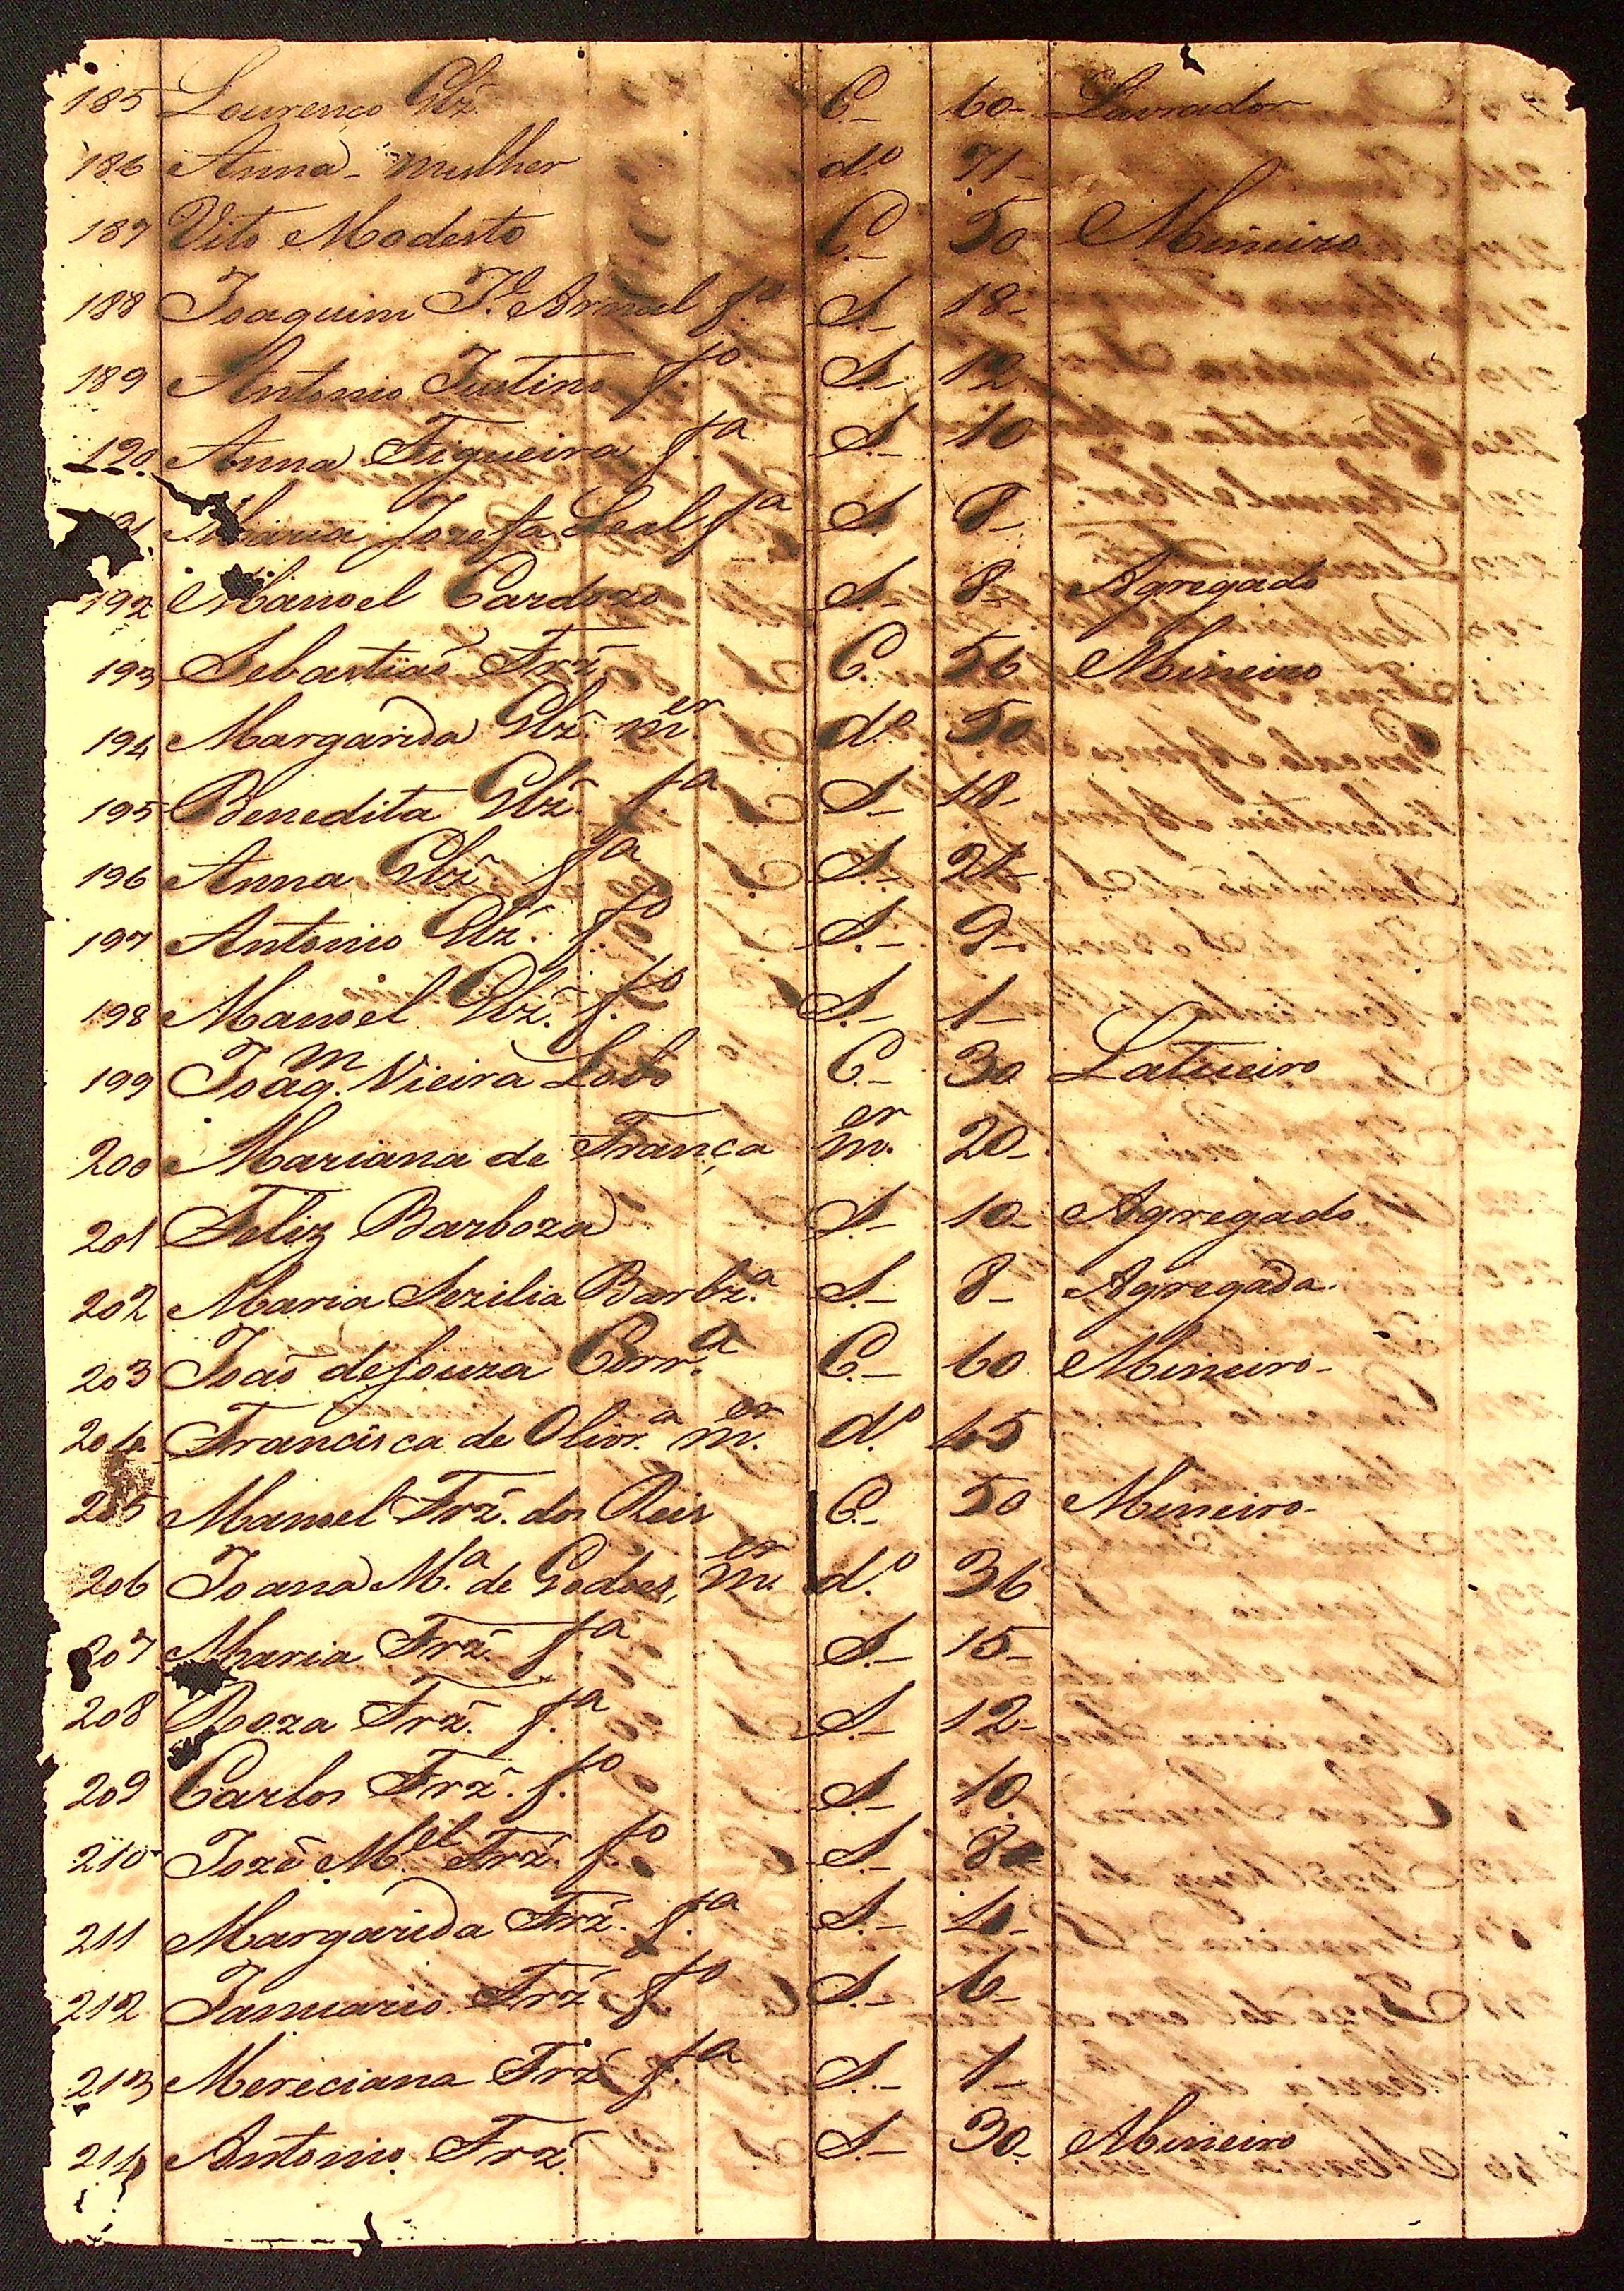 185 Lourenço Glz. C.- 60- Lavrador
186 Anna- mulher d.º 71-
187 Vito Modesto C.- 50 Mineiro
188 Joaquim f.º S.- 18-
189 Antonio Justino f.º S.- 12
190 Anna Figueira f.ª S.- 10
Maria Jozefa Leal f.ª S.- 8-
192 Manoel Cardozo S.- 8- Agregado
193 Sebastiaõ Frz̃ C. 56 Mineiro
194 Margarida Glz̃. m.er d.º 50
195 Benedita Glz̃. f.ª S.- 18-
196 Anna Glz̃ f.ª S.-
197 Antonio Glz̃. f.º S.- 9-
198 Manoel Glz̃. f.º S.- 1-
199 Joaq.m Vieira Lobo C.- 30 Latueiro
200 Mariana de França m.er 20-
201 Feliz Barboza S.- 10- Agregado
202 Maria Sezilia Barbz.ª S.- 8- Agregada.
203 Joaõ de Souza Corr.ª C.- 60 Mineiro-
204 Francisca de Olivr.ª m.er d.º 45
205 Manoel Frz̃. dos Reis C.- 50 Mineiro-
206 Joana M.ª de Godoes, m.er d.º 36
207 Maria Frz̃. f.ª S.- 15-
208 Roza Frz̃. f.ª S.- 12-
209 Carlos Frz̃. f.º S.- 10
210 Jozé M.el Frz̃. f.º S.- 8
211 Margarida Frz̃. f.ª S.-
212 Januario Frz̃ f.º S.- 6-
213 Mereciana Frz̃ f.ª S.- 1-
214 Antonio Frz̃. S.- 30- Mineiro